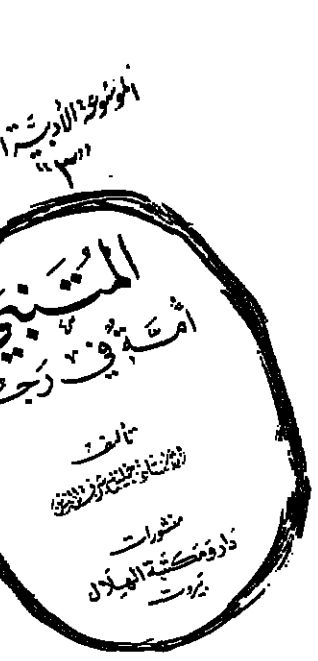 الموسوعة الأدبية
"٣"
المتنبي
أمَّة في رَجُ
تأليف
منشورات
دار ومكتبة الهلال
بيروت